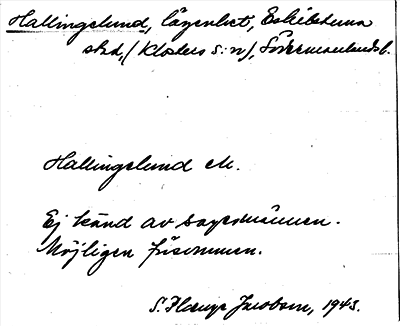 Hallingslund, lägenhet, Eskilstuna
stad, (Klosters s:n), Södermanlands l.
Hallingslund M.
Ej känd av sagesmännen.
Möjligen försvunnen.
S. Jacobson, 1943.